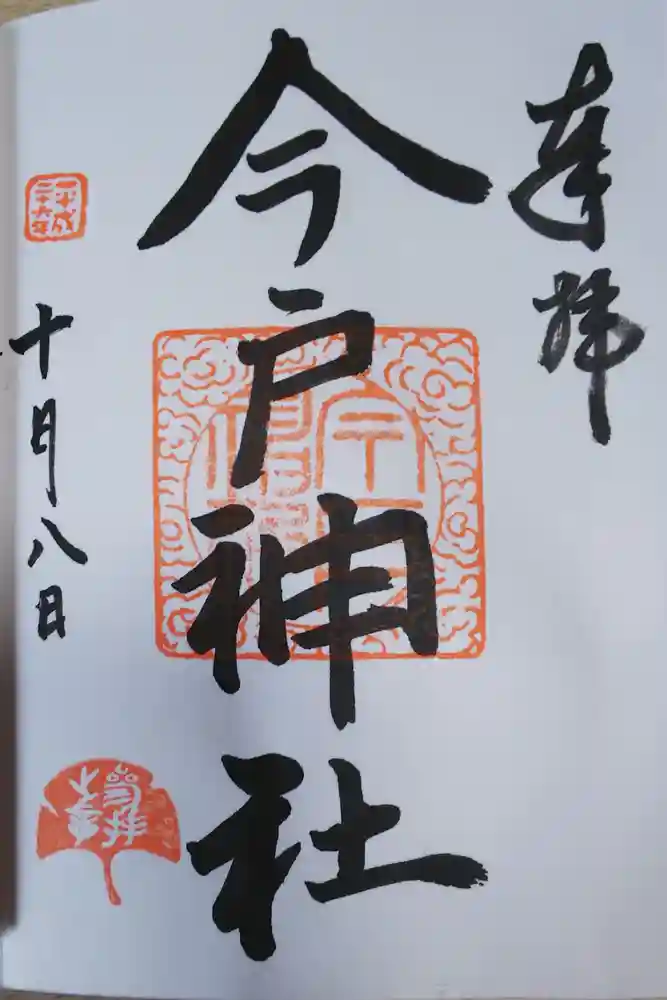 奉拝
今戸神社
平成
二十六年
十月八日